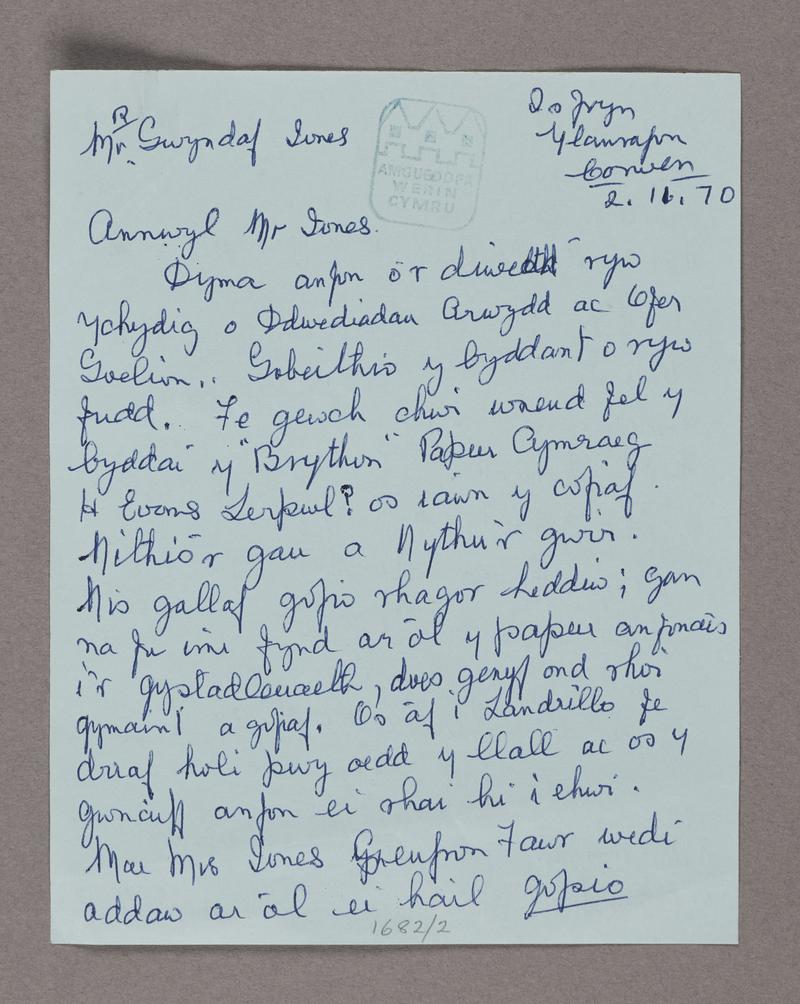 Mr R Gwyndaf Jones
AMGUEDDFA
WERIN
CYMRU
Fryn
Llanrafon
Corwen
2. 11. 70
Annwyl Mr Jones.
Dyma anfon o'r diwedd ryw
ychydig o Ddwediadau Arwydd ac Ofer
Goelion.. Gobeithio y byddant o ryw
fudd. Fe gewch chwi wneud fel y
byddai y "Brython" Papur Cymraeg
H Evans Lerpwl? os iawn y cofiaf.
Nithio'r gau a Nythu'r gwir.
Nis gallaf gopio rhagor heddiw; gan
na fu imi fynd ar ôl y papur anfonais
i'r gystadleuaeth, does genyf ond rhoi
gymaint a gofiaf. Os âf i Landrillo fe
driaf holi pwy oedd y llall ac os y
gwnaiff anfon ei rhai hi i chwi.
Mae Mrs Jones Fawr wedi
addaw ar ôl ei hail gopio
1682/2